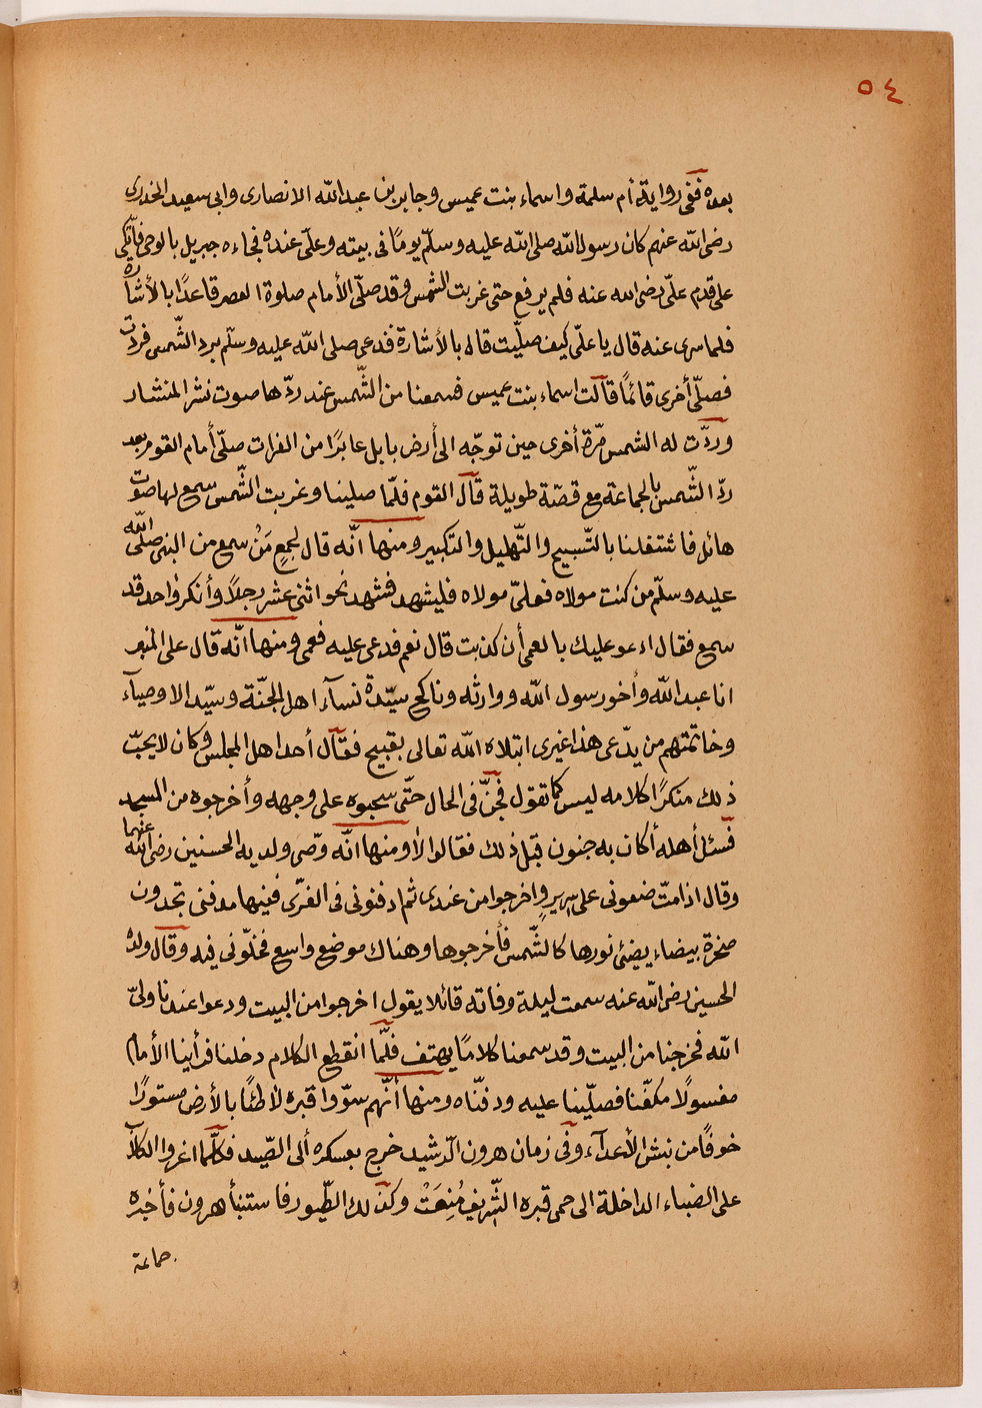 ٥٤
بعده ففى رواية أم سلمة واسماء بنت عميس وجابر بن عبدالله الانصارى وابى سعيد الخدرى
رضى الله عنهم كان رسول الله صلى الله عليه وسلّم يومًا فى بيته وعلىّ عنده فجاءه جبريل بالوحى فاتّكى
على قدم علىّ رضى الله عنه فلم يرفع حتى غربت الشمس وقد صلّى الأمام صلوة العصر قاعدًا بالأشارة
فلما سرى عنه قال يا علىّ كيف صلّيت قال بالأشارة فدعى صلى الله عليه وسلّم برد الشّمس فردّت
فصلّى أخرى قائمًا قالت اسماء بنت عميس فسمعنا من الشّمس عند ردّها صوت نشر المنشار
وردّت له الشمس مرّة أخرى حين توجّه الى أرض بابل عابرًا من الفرات صلّى أمام القوم بعد
ردّ الشّمس بالجماعة مع قصّة طويلة قال القوم فلمّا صلينا وغربت الشّمس سمع لها صوت
هائل فاشتغلنا بالتّسبيح والتّهليل والتكبير ومنها انّه قال لجمعٍ مَنْ سمع من النبى صلى الله
عليه وسلّم من كنت مولاه فعلىّ مولاه فليشهد فشهد نحو اثنى عشر رجلاً وأنكر واحد قد
سمع فقال ادعو عليك بالعمى أن كذبت قال نعم فدعى عليه فعمى ومنها انّه قال على المنبر
انا عبدالله وأخو رسول الله ووارثه وناكح سيّدة نسآء اهل الجنّة وسيّد الاوصيآء
وخاتمتهم من يدّعى هذا غيرى ابتلاه الله تعالى بقبيح فقال أحد اهل المجلس وكان لا يحبّ
ذلك منكرًا كلامه ليس كما تقول فجنّ فى الحال حتّى سحبوه على وجهه وأخرجوه من المسجد
فسئل أهله أكان به جنون قبل ذلك فقالوا لا ومنها انّه وصّى ولديه الحسنين رضى الله عنهما
وقال اذا متّ ضعونى على سريرٍ واخرجوا من عندى ثم ادفنونى فى الغرّى فيها مدفنى تجدون
صخرة بيضاء يضئ نورها كالشّمس فأخرجوها وهناك موضع واسع فخلّونى فيه وقال ولده
الحسين رضى الله عنه سمعت ليلة وفاته قائلا يقول اخرجوا من البيت ودعوا عندنا ولىّ
الله فخرجنا من البيت وقد سمعنا كلامًا يهتف فلّما انقطع الكلام دخلنا فرأينا الأمام
مغسولًا مكفّنا فصلّينا عليه ودفنّاه ومنها أنّهم سوّوا قبره لاطئًا بالأرض مستورًا
خوفًا من نبش الأعدآء وفى زمان هرون الرّشيد خرج بعسكره ألى الصّيد فكلّما اغروا الكلاب
على الضباء الداخلة الى حمى قبره الشّريف مُنِعَتْ وكذلك الطّيور فاستنبأ هرون فأخبره
جماعة